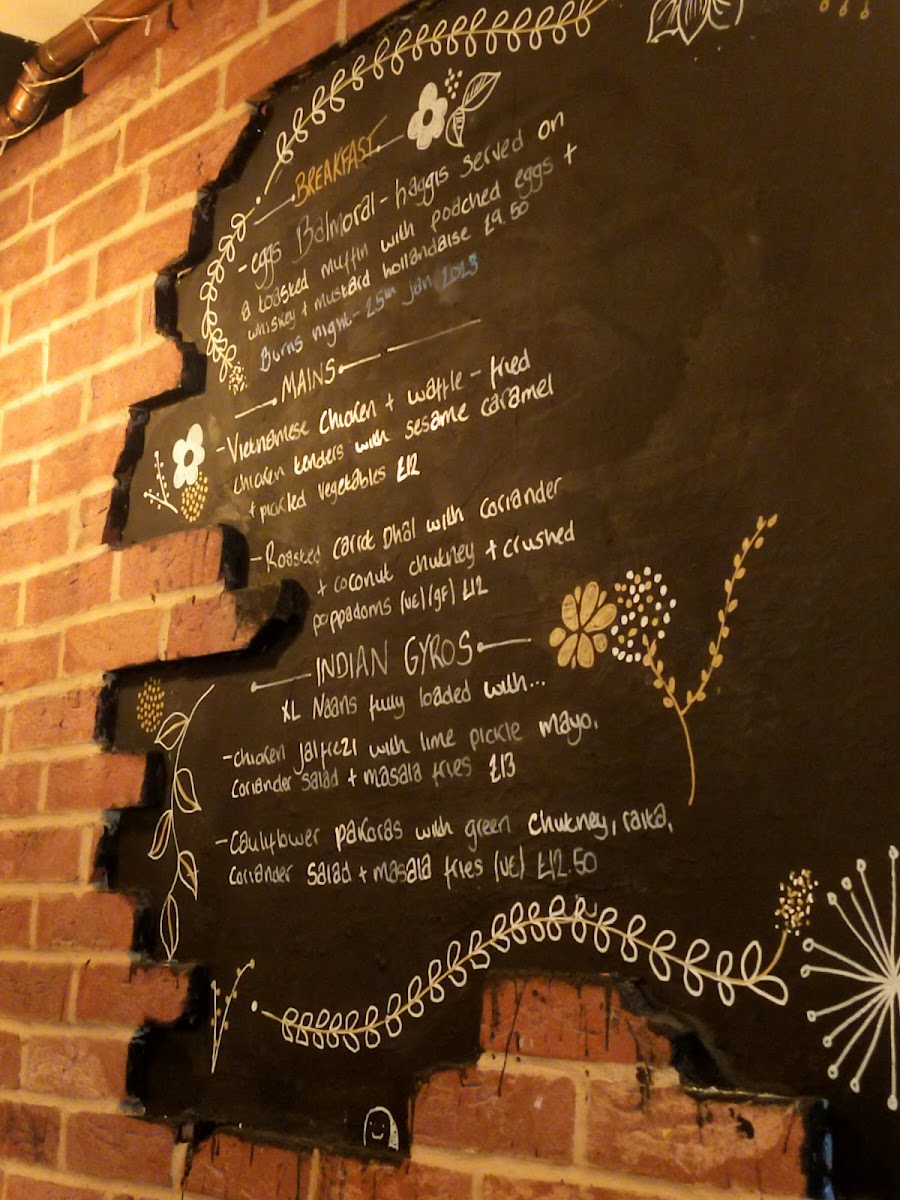 BREAKFAST
- eggs Balmoral - haggis served on
a toasted muffin with poached eggs +
whiskey + mustard hollandaise £9.50
Burns night - 25th Jan 2023
MAINS
- Vietnamese Chicken + waffle - fried
chicken tenders with sesame caramel
+ pickled vegetables £12
- Roasted carrot Dhal with coriander
+ coconut chutney + crushed
poppadoms (VE) (GF) £12
INDIAN GYROS
XL Naans fully loaded with...
- chicken jalfrezi with lime pickle mayo,
coriander salad + masala fries £13
- Cauliflower pakoras with green chutney, raita,
coriander salad + masala fries (VE) £12.50